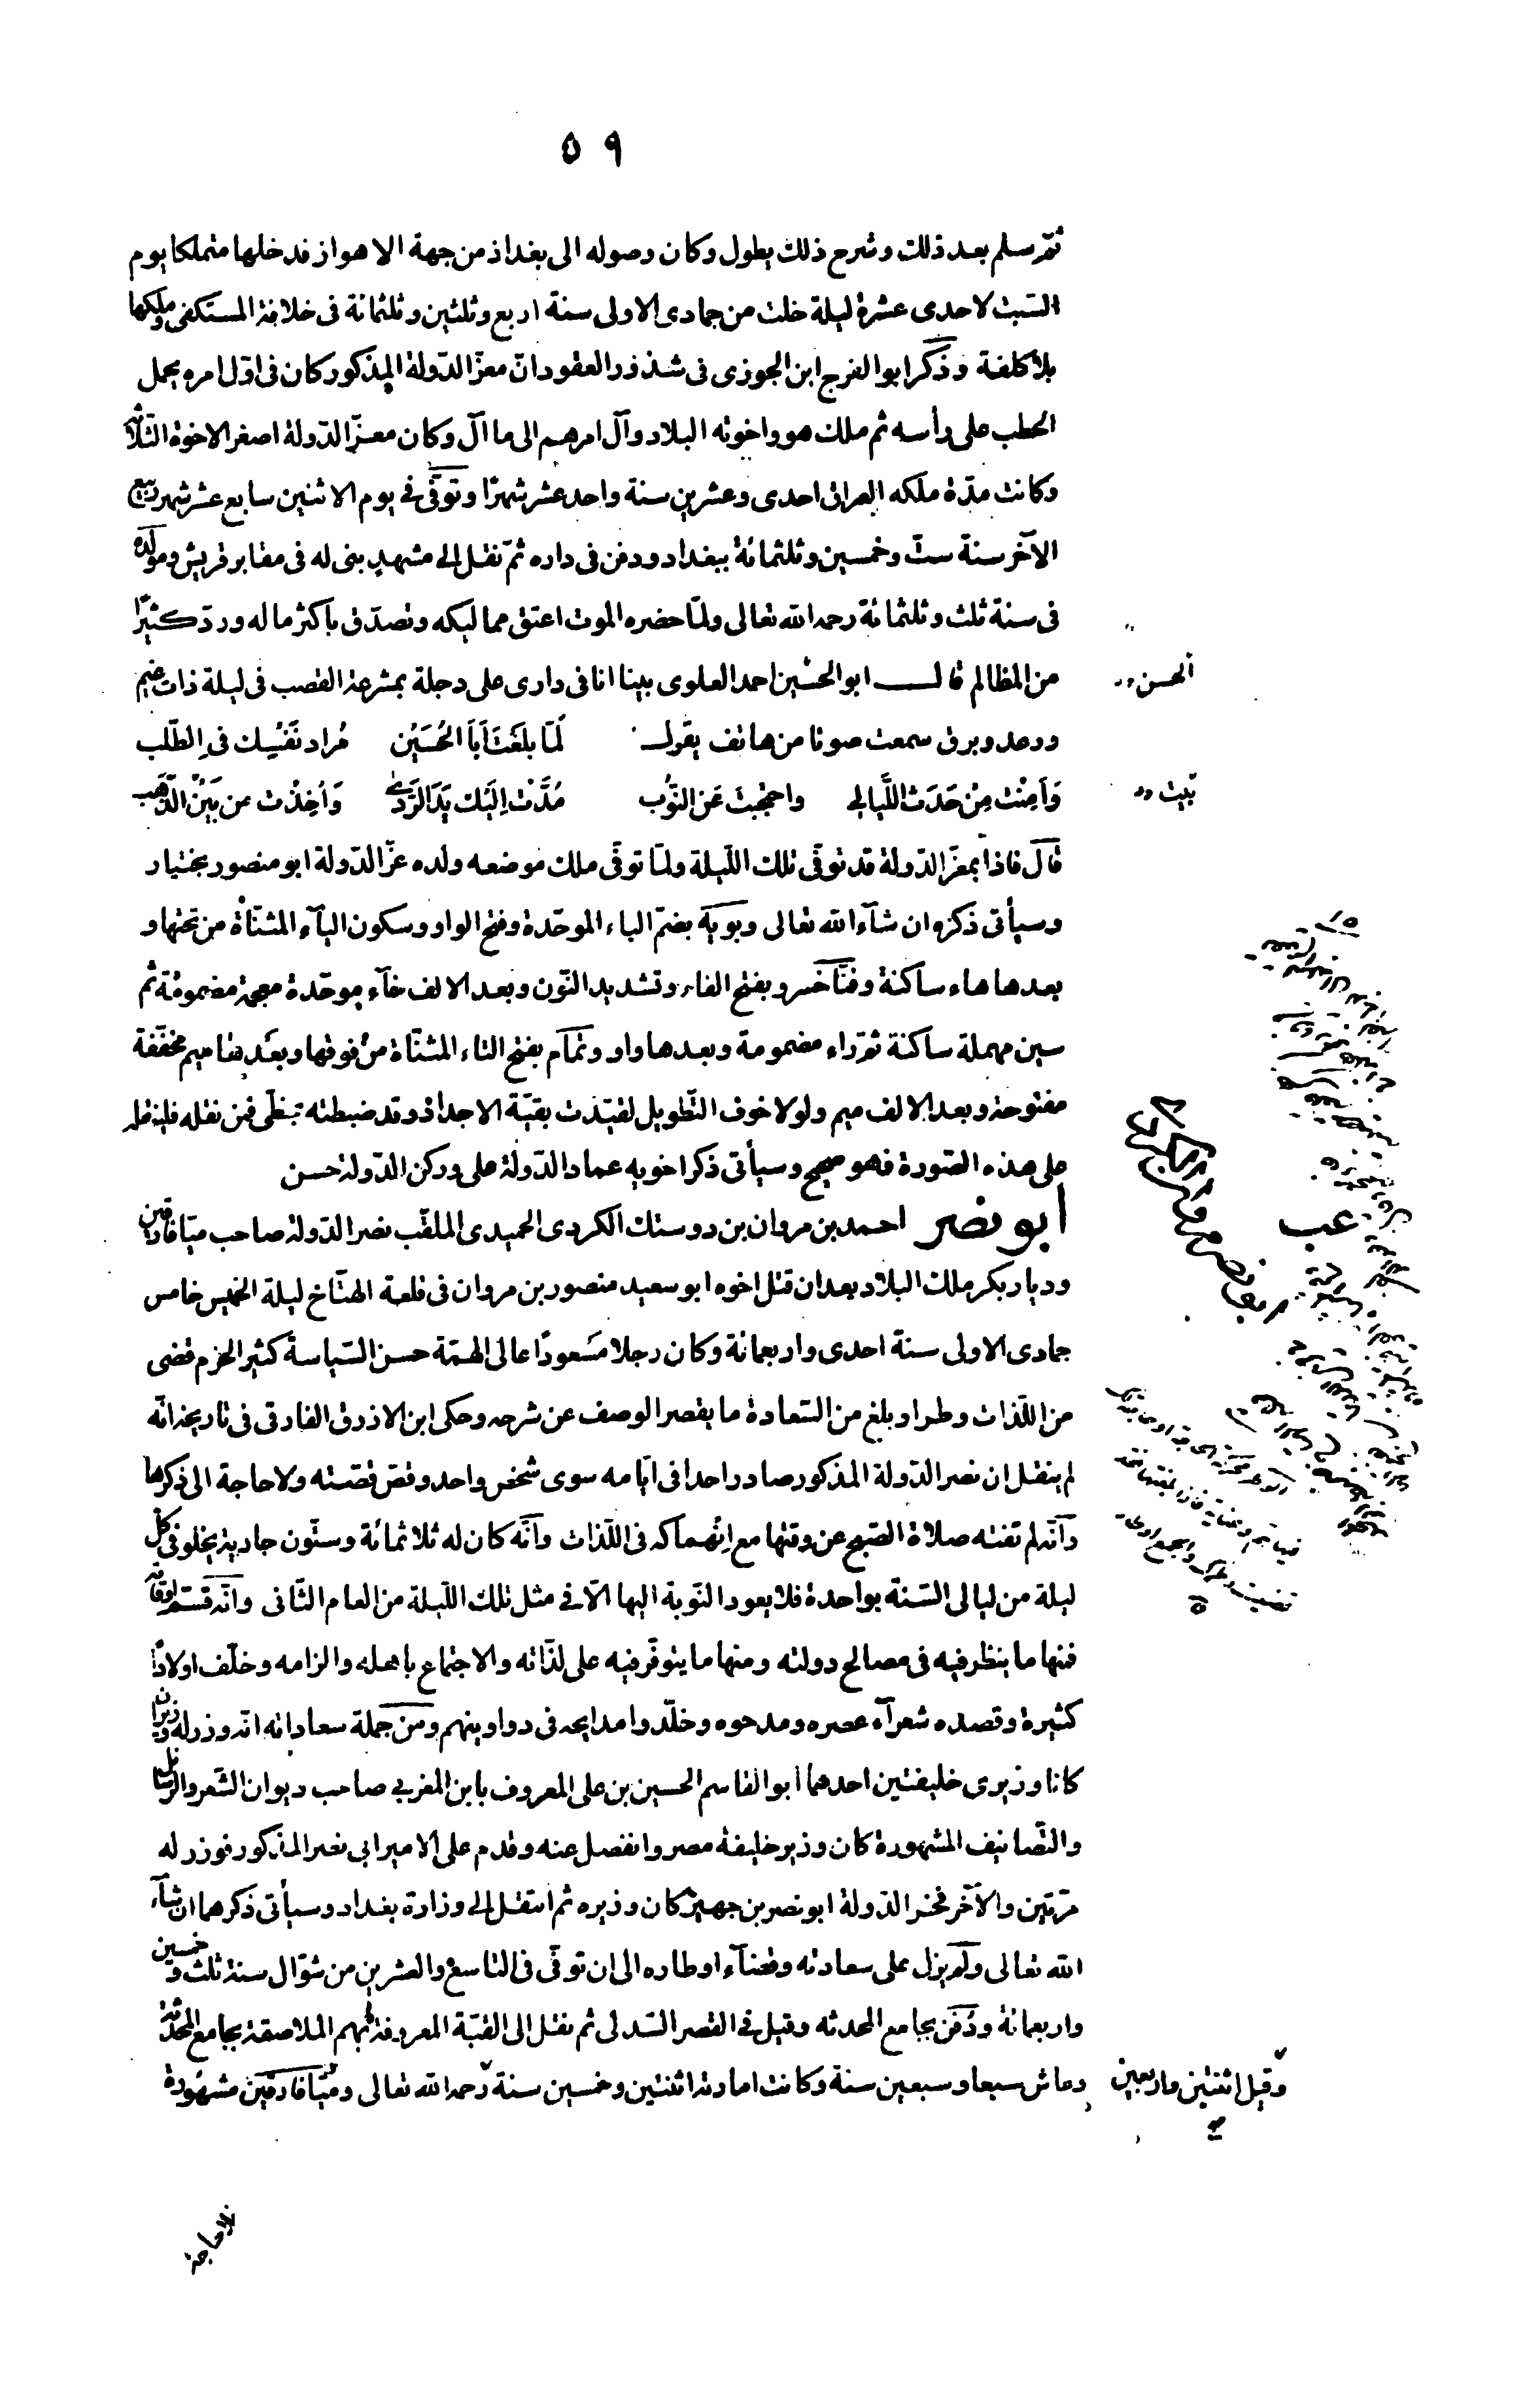 ٥٩
ثمّ سلم بعد ذلك وشرح ذلك يطول وكان وصوله الى بغداذ من جهة الاهواز فدخلها متملكا يوم
السّبت لاحدى عشرة ليلة خلت من جمادى الاولى سنة اربع وثلثين وثلثمائة فى خلافة المستكفى وملكها
بلا كلفة وذكر ابوا الفرج ابن الجوزى فى شذور العقود انّ معزّ الدّولة المذكور كان فى اوّل امره يحمل
الحطب على رأسه ثم ملك هو واخوته البلاد وآل امرهم الى ما آل وكان معزّ الدّولة اصغر الاخوة الثلاثة
وكانت مدّة ملكه العراق احدى وعشرين سنة واحد عشر شهرًا وتوفّى فى يوم الاثنين سابع عشر شهر ربيع
الآخر سنة ستّ وخمسين وثلثمائة ببغداد ودفن فى داره ثمّ نقل الى مشهد بنى له فى مقابر قريش ومولده
فى سنة ثلث وثلثمائة رحمه الله تعالى ولمّا حضره الموت اعتق مماليكه وتصدّق باكثر ماله وردّ كثيرًا
من المظالم قال ابوالحسين احمد العلوى بينا انا فى دارى على دجلة بمشرعة القصب فى ليلة ذات غيم
الحسن
ورعد وبرق سمعت صوتا من هاتف يقول لَمّا بلَغتَ اَبَا الحُسَيْن مُراد نَفْسِك فى الطّلب
وَاَمِنْت مِنْ حَدَث اللَّيالى واحتجبتَ عَن النّوُب مُدَّت اِليَك يَدَ الرَدىٰ وَاُخِذْت من بَيْن الذّهب
بيت
قال فاذا بمعزّ الدّولة قد توفّى تلك اللّيلة ولمّا توفّى ملك موضعه ولده عزّ الدّولة ابو منصور بختيار
وسيأتى ذكره ان شآء الله تعالى وبويه بضمّ الباء الموحّدة وفتح الواو وسكون اليآء المثنّاة من تحتها و
بعدها هاء ساكنة وفنّاخسرو بفتح الفاء وتشديد النّون وبعد الالف خآء موحّدة معجمة مضمومة ثم
سين مهملة ساكنة ثمّ راء مضمومة وبعدها واو وتمام بفتح التاء المثنّاة من فوقها وبعدها ميم مخفّفة
مفتوحة وبعد الالف ميم ولولا خوف التّطويل لقيّدت بقيّة الاجداد وقد ضبطته بخطّى فمن نقله فلينقله
على هذه الصّورة فهو صحيح وسيأتى ذكر اخويه عماد الدّولة على وركن الدّولة حسن
أبو نصر احمد بن مروان بن دوستك الكردى الحميدى الملقّب نصر الدّولة صاحب ميّافارقين
وديار بكر ملك البلاد بعد ان قتل اخوه ابو سعيد منصور بن مروان فى قلعة الهتّاخ ليلة الخميس خامس
جمادى الاولى سنة احدى واربعمائة وكان رجلا مسعودًا عالى الهمّة حسن السّياسة كثير الحزم قضى
من اللّذات وطرا وبلغ من السّعادة ما يقصر الوصف عن شرحه وحكى ابن الازرق الفارقى فى تاريخه انّه
لم ينقل ان نصر الدّولة المذكور صادر احدا فى ايّامه سوى شخص واحد وقصّ قصّته ولا حاجة الى ذكرها
وانّه لم تفته صلاة الصّبح عن وقتها مع انهماكه فى اللّذات وانّه كان له ثلاثمائة وستّون جارية يخلو فى كلّ
ليلة من ليالى السّنة بواحدة فلا يعود النّوبة اليها الّا فى مثل تلك اللّيلة من العام الثّانى وانّه قسّم اوقاته
فمنها ما ينظر فيه فى مصالح دولته ومنها ما يتوفّر فيه على لذّاته والاجتماع باهله والزامه وخلّف اولادًا
كثيرة وقصده شعرآء عصره ومدحوه وخلّدوا مدايحه فى دواوينهم ومن جملة سعاداته انّه وزر له وزيران
كانا وزيرى خليفتين احدهما ابوالقاسم الحسين بن على المعروف بابن المغربى صاحب ديوان الشّعر والرسائل
والتّصانيف المشهورة كان وزير خليفة مصر وانفصل عنه وقدم على الامير ابى نصر المذكور فوزر له
مرّتين والآخر فخر الدّولة ابو نصر بن جهير كان وزيره ثم انتقل الى وزارة بغداد وسيأتى ذكرهما ان شآء
الله تعالى ولم يزل على سعادته وقضآء اوطاره الى ان توفّى فى التاسع والعشرين من شوّال سنة ثلث وخمسين
واربعمائة ودُفن بجامع المحدثه وقيل فى القصر السّدلى ثم نقل الى القبّة المعروفة بهم الملاصقة بجامع المحدثة
وعاش سبعا وسبعين سنة وكانت امارته اثنتين وخمسين سنة رحمه الله تعالى وميّافارقين مشهورة
وقيل اثنتين واربعين
فلا حاجة